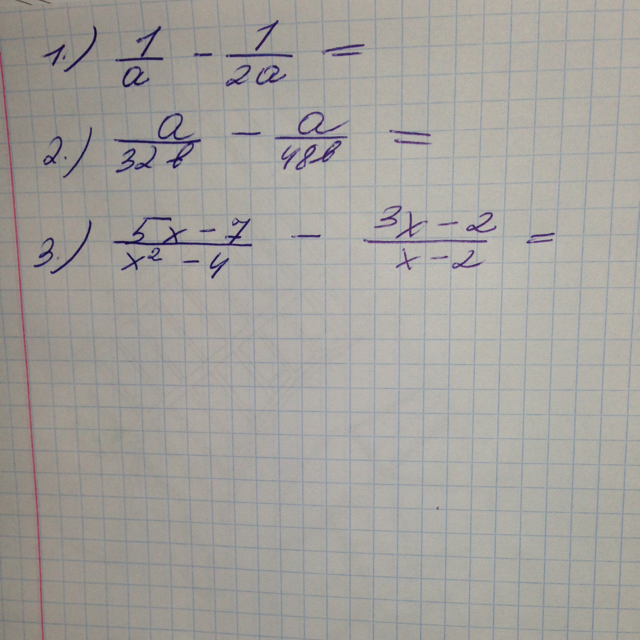 1.) 1/a - 1/2a =
2.) a/32в - a/48в =
3.) 5x-7/x²-4 - 3x-2/x-2 =